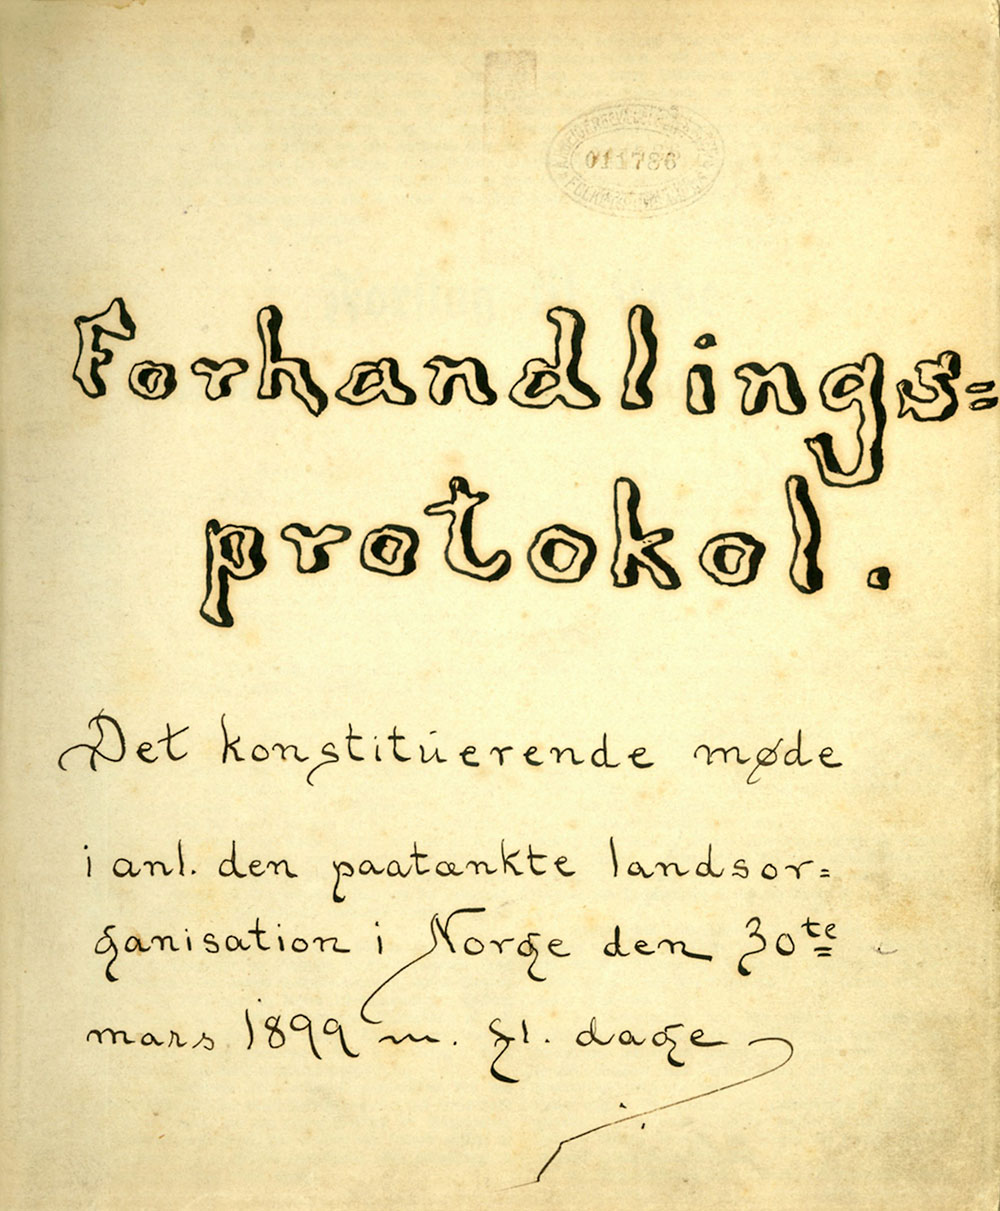 011786
Forhandlings=
protokol.
Det konstitúerende møde
i anl. den paatænkte landsor=
ganisation i Norge den 30te
mars 1899 m. fl. dage